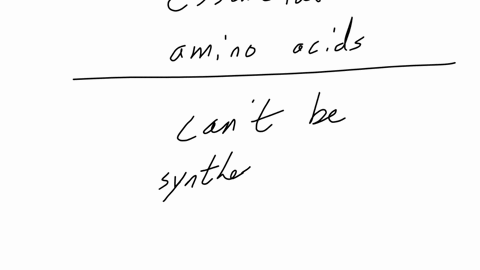 essential
amino acids
can't be
synthe